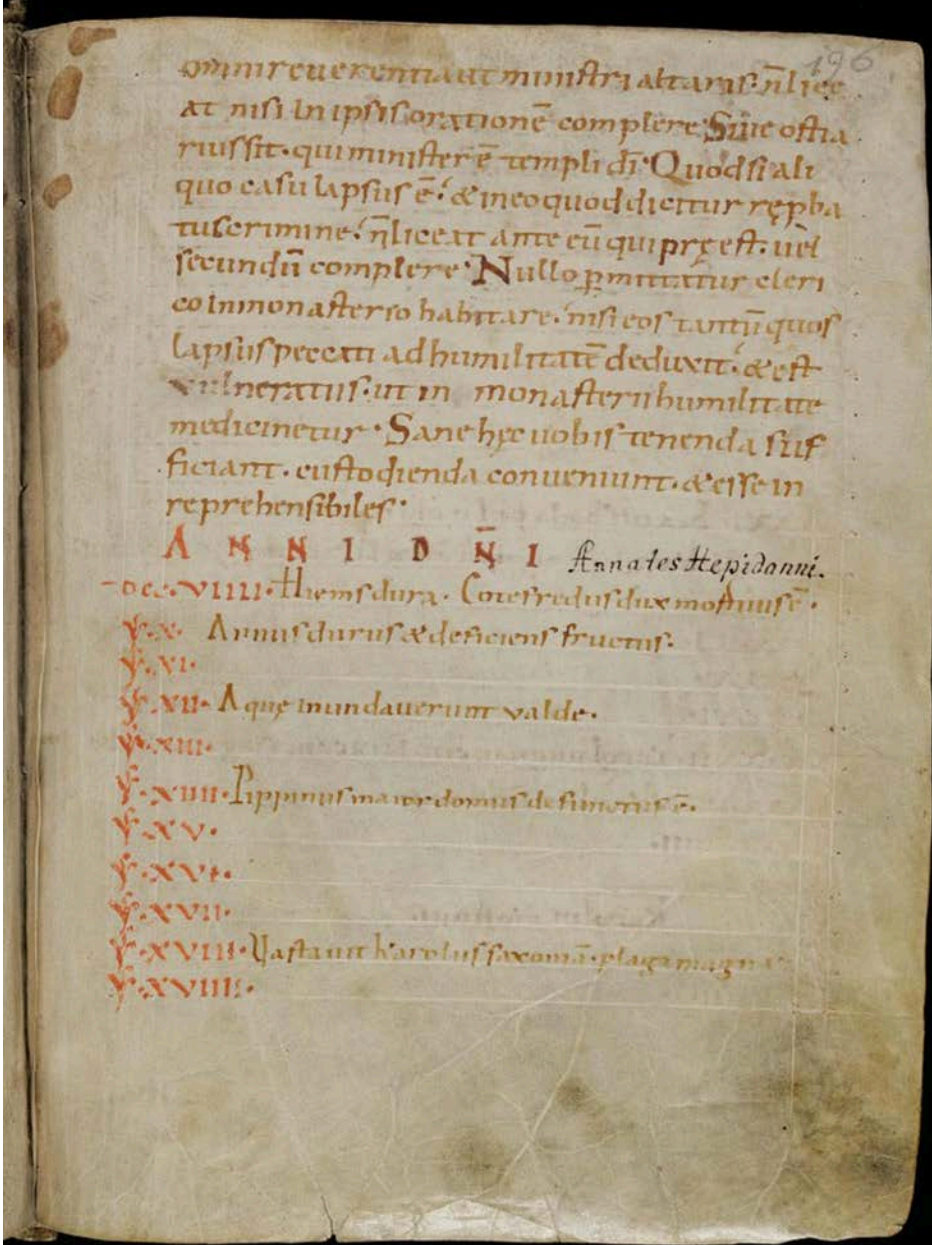 196
omni reuerentia ut ministri altaris· n̄ lice
at nisi in ipsis orationē complere· Siue ostia
rius sit· qui minister ē templi dī· Quod si ali
quo casu lapsus ē· & in eo quod dicitur rep̱ba
tus crimine· n̄ liceat ante eū qui pręest· uel
secundū complere· Nullo p̱mittatur cleri
co in monasterio habitare· nisi eos tantū quos
lapsus peccati ad humilitatē deduxit· & est
vulneratus· ut in monasterii humilitate
medicinetur· Sane hęc uobis tenenda suf
ficiant· custodienda conueniunt· & esse in
reprehensibiles·
ANNI DN̄I Annales Hepidanni.
DCC·VIIII· Hiems dura· Cotefredus dux mortuus ē·
X· Annus durus & deficiens fructus·
XI·
XII· Aquę inundauerunt valde·
XIII·
XIIII· Pippinus maior domus defunctus ē·
XV·
XVI·
XVII·
XVIII· Vastauit karolus saxoniā· plaga magna
XVIIII·